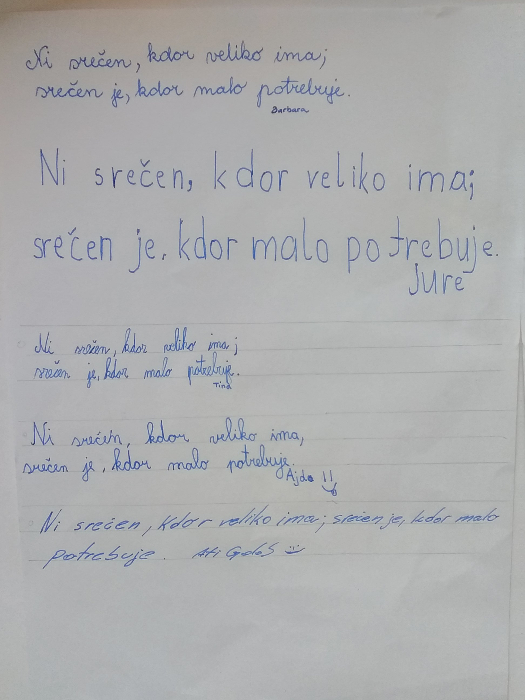 Ni srečen, kdor veliko ima;
srečen je, kdor malo potrebuje.
Barbara
Ni srečen, kdor veliko ima;
srečen je, kdor malo potrebuje.
Jure
Ni srečen, kdor veliko ima;
srečen je, kdor malo potrebuje.
Tina
Ni srečen, kdor veliko ima,
srečen je, kdor malo potrebuje.
Ajda !!
Ni srečen, kdor veliko ima; srečen je, kdor malo
potrebuje. Ati